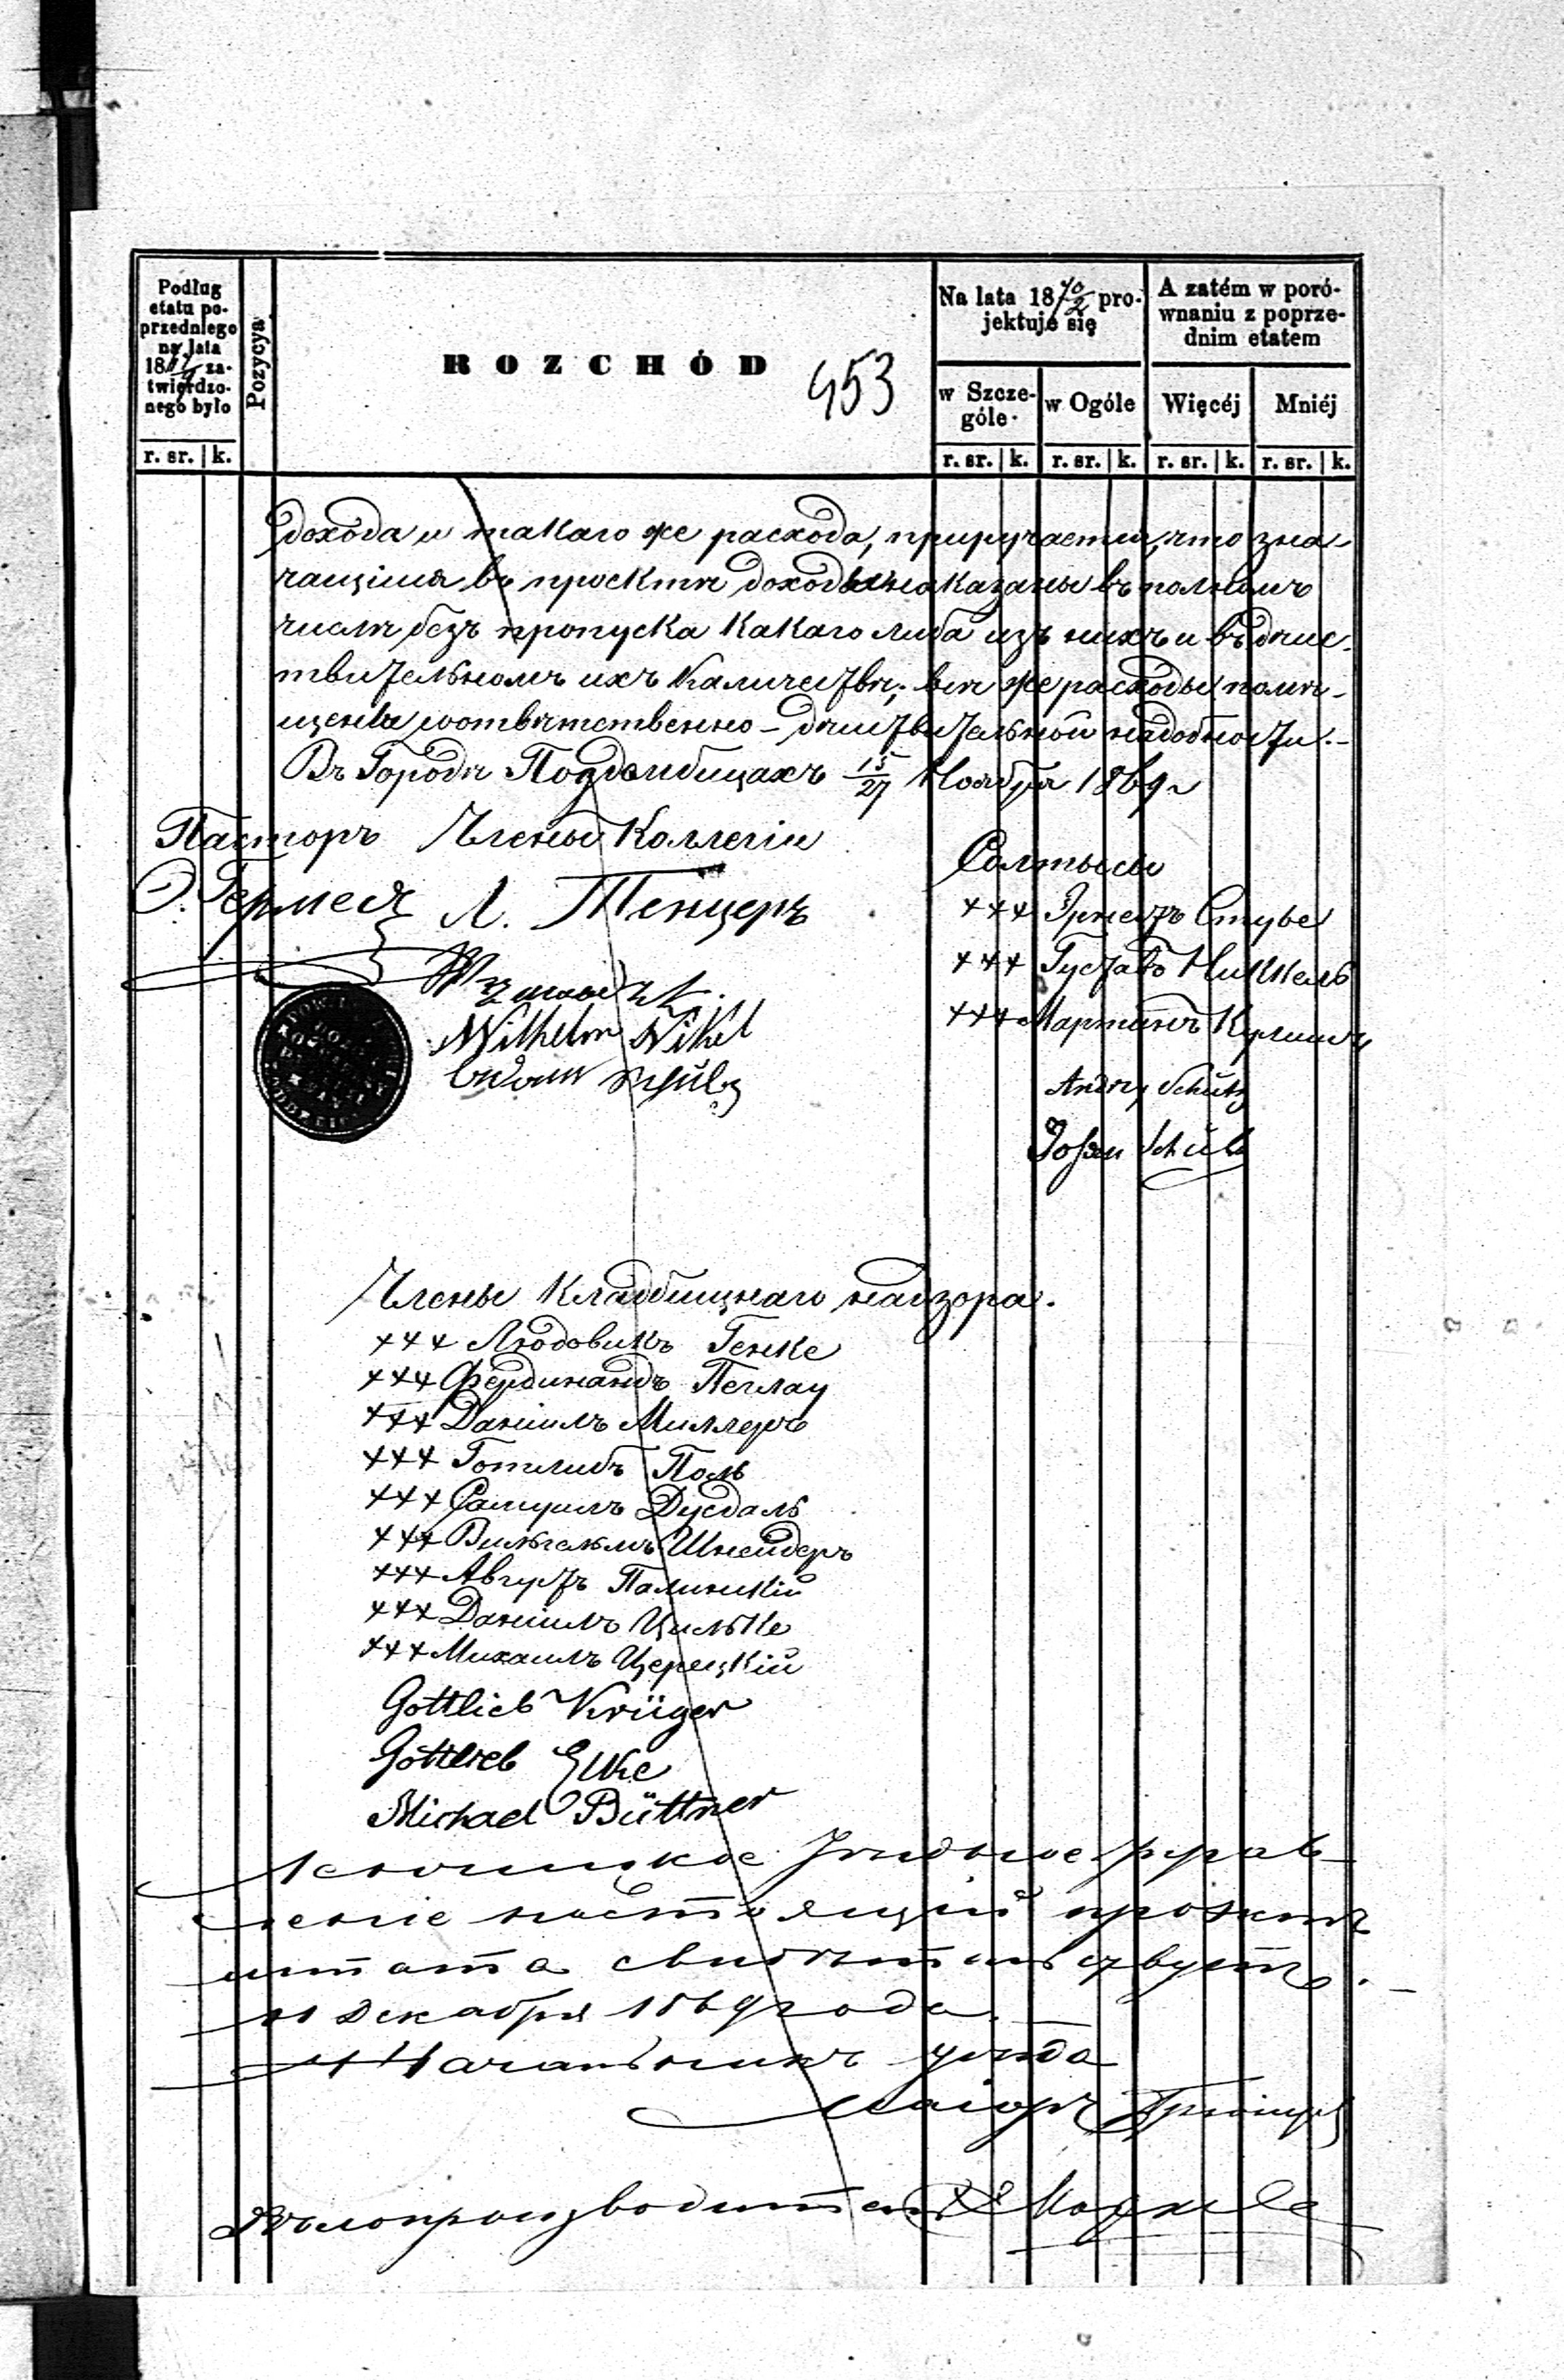 Podług
etatu po-
przedniego
na lata
18 za-
twierdzo-
nego było
Pozycya
ROZCHÓD
453
Na lata 1870/2 pro-
jektuje się
A zatém w poró-
wnaniu z poprze-
dnim etatem
w Szcze-
góle
w Ogóle
Więcéj
Mniéj
r. sr. k.
r. sr. k. r. sr. k. r. sr. k. r. sr. k.
дохода и такаго же расхода, приручаетъ, что зна-
чащіяся въ проектѣ доходы показаны въ полномъ
числѣ безъ пропуска какаго либо изъ нихъ и въ дѣйс-
твительномъ ихъ каличествѣ; всѣ же расходы помѣ-
щены соотвѣтственно дѣйствительной надобности.
Въ Городѣ Поддембицахъ 15/27 Ноября 1869 г
Пасторъ Члены Коллегіи
Солтысы
Гермесъ Л. Тенцеръ
+++ Эрнестъ Стубе
+++ Густавъ Никкель
Wilhelm Nikel
+++ Мартинъ
Schulz
Andrzy Schultz
Johan Schulz
Члены Кладбищнаго надзора.
+++ Людовикъ Генке
+++ Фердинандъ Пеглау
+++ Даніилъ Миллеръ
+++ Готлибъ Поль
+++ Самуилъ Дусдаль
+++ Вильгельмъ Шнейдеръ
+++ Августъ Палинскій
+++ Даніилъ Цильке
+++ Михаилъ Церецкій
Gottlieb Krüger
Gottlieb Elke
Michael Büttner
Ленчицкое Уѣздное Управ-
леніе настоящій проэктъ
штата свидѣтельствуетъ.
Декабря 1869 года
Начальникъ уѣзда
Маіоръ
Дѣлопроизводитель